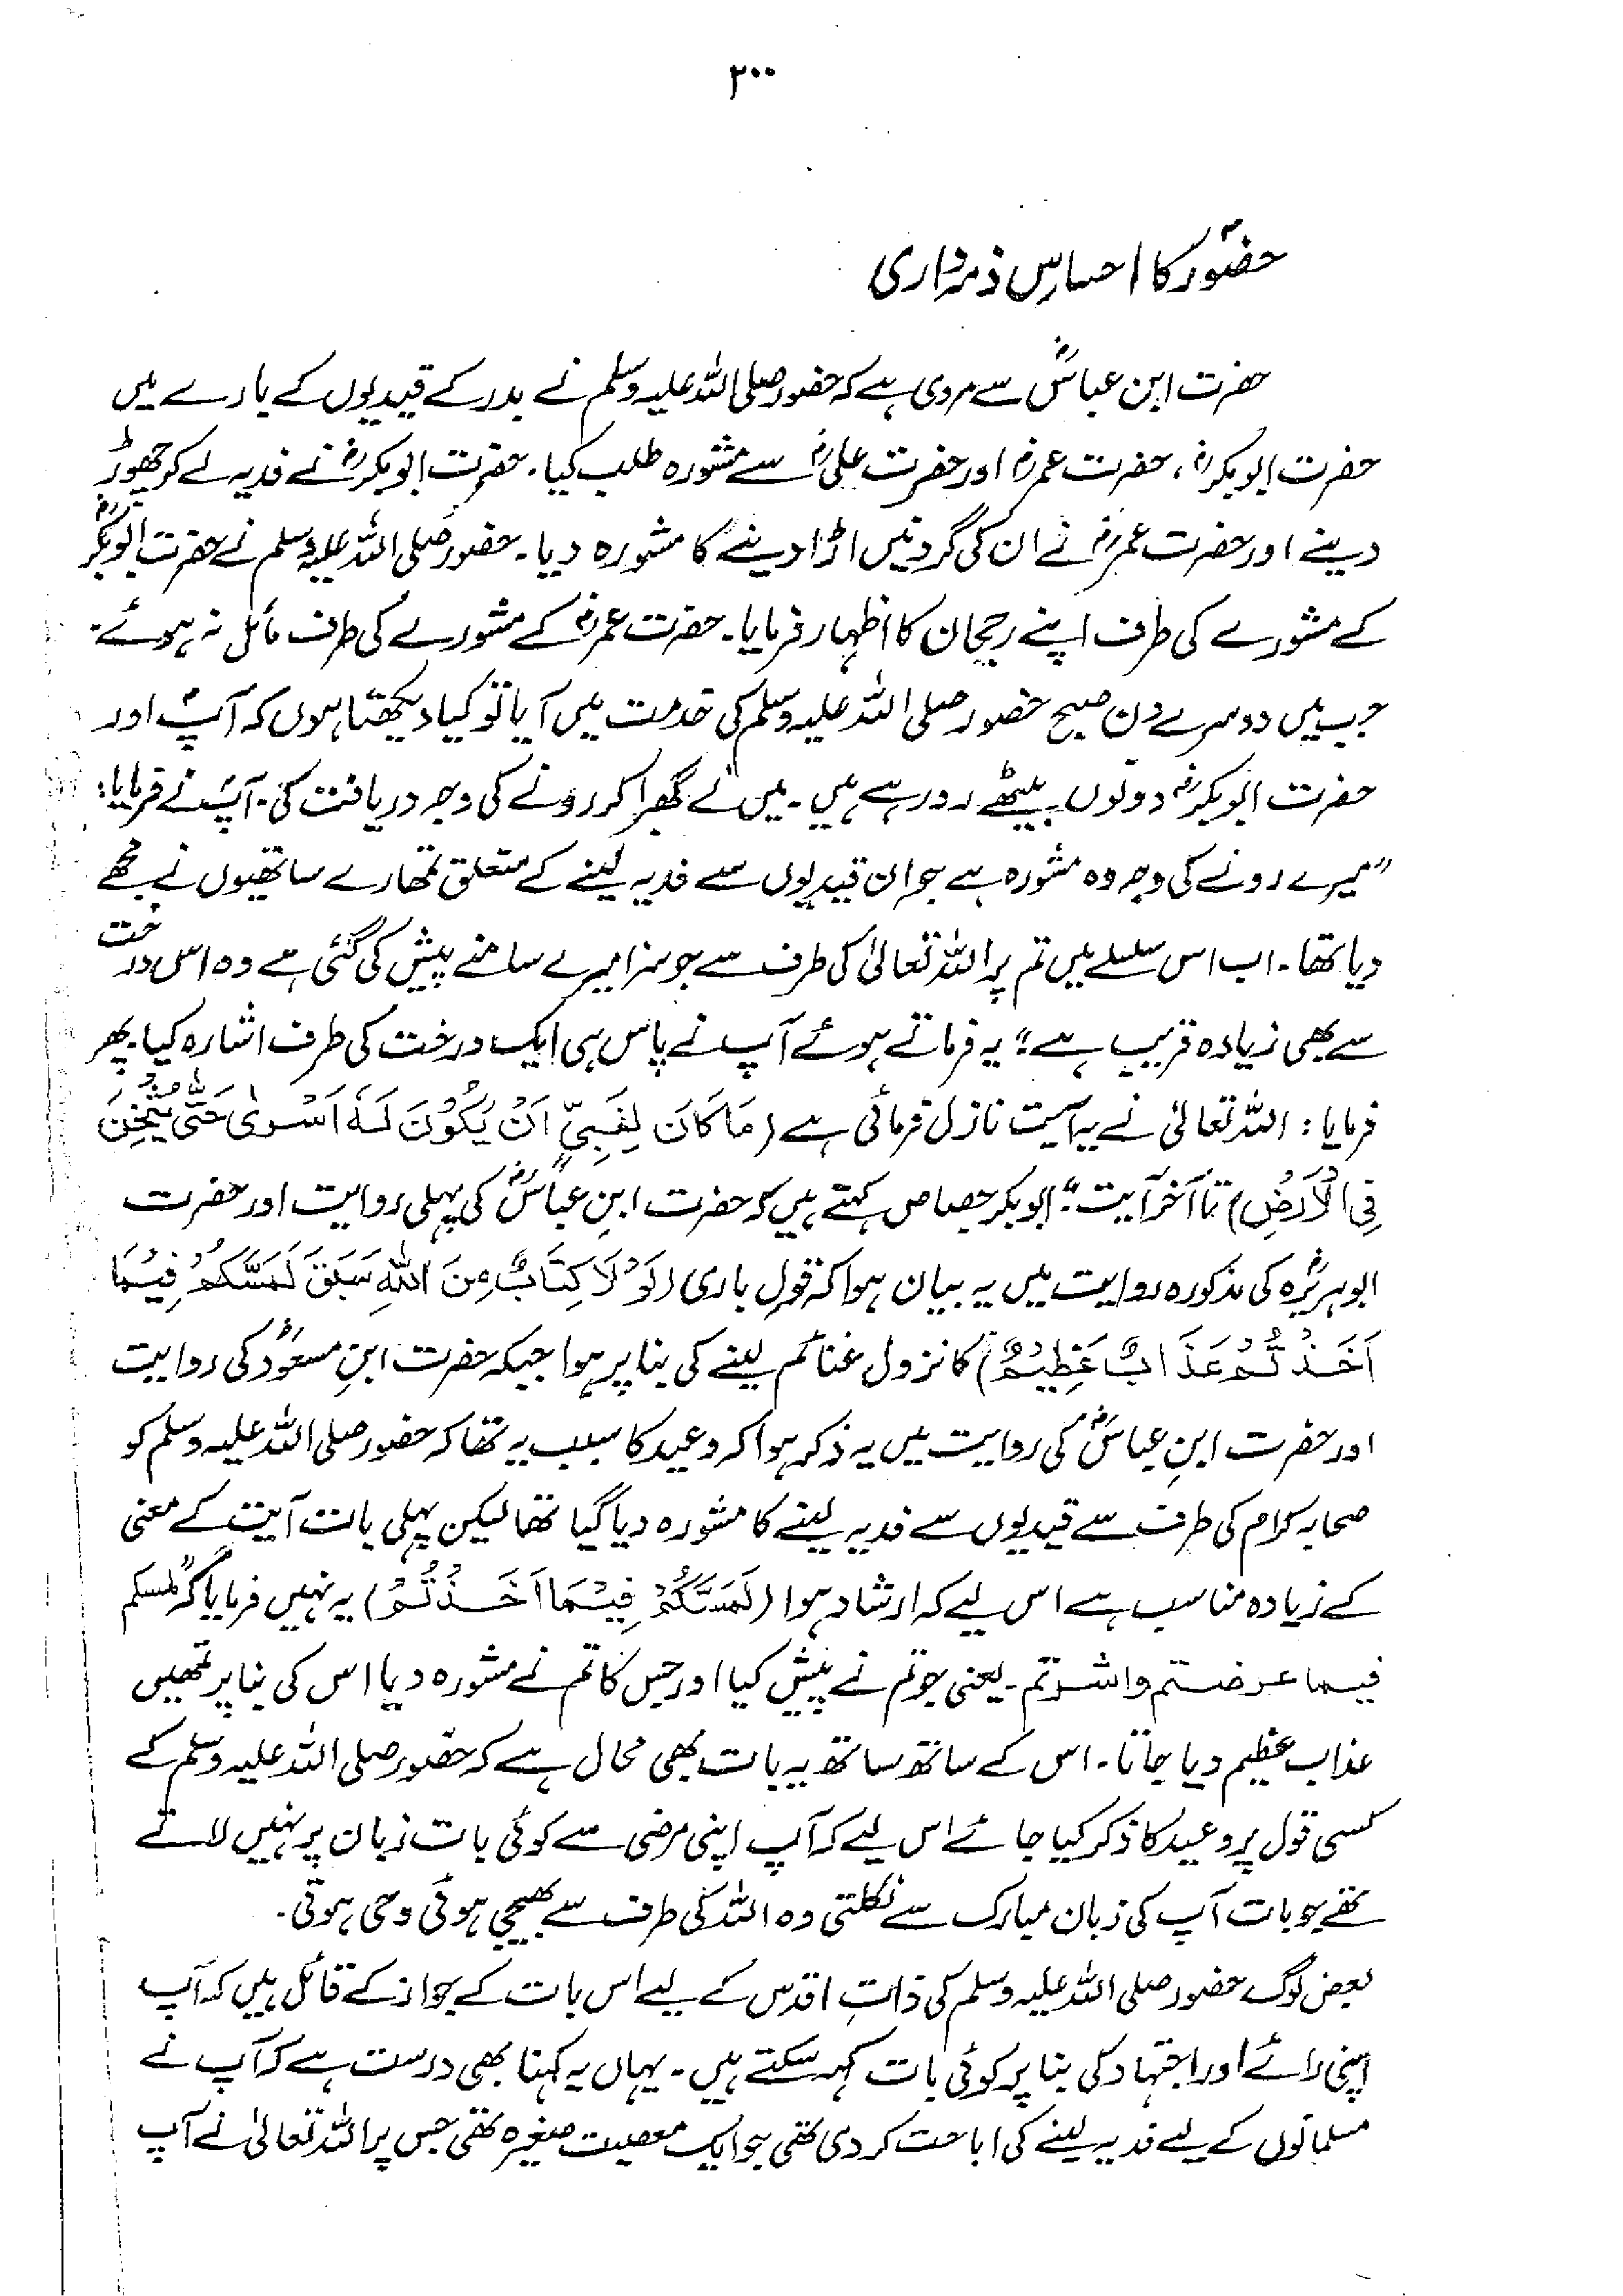 ۳۰۰
حضورؐ کا احساسِ ذمہ داری
حضرت ابن عباسؓ سے مروی ہے کہ حضور صلی اللہ علیہ وسلم نے بدر کے قیدیوں کے بارے میں
حضرت ابوبکرؓ، حضرت عمرؓ اور حضرت علیؓ سے مشورہ طلب کیا۔ حضرت ابوبکرؓ نے فدیہ لے کر چھوڑ
دینے اور حضرت عمرؓ نے ان کی گردنیں اڑا دینے کا مشورہ دیا۔ حضور صلی اللہ علیہ وسلم نے حضرت ابوبکرؓ
کے مشورے کی طرف اپنے رجحان کا اظہار فرمایا۔ حضرت عمرؓ کے مشورے کی طرف مائل نہ ہوئے۔
جب میں دوسرے دن صبح حضور صلی اللہ علیہ وسلم کی خدمت میں آیا تو کیا دیکھتا ہوں کہ آپؐ اور
حضرت ابوبکرؓ دونوں بیٹھے رو رہے ہیں۔ میں نے گھبرا کر رونے کی وجہ دریافت کی۔ آپؐ نے فرمایا:
”میرے رونے کی وجہ وہ مشورہ ہے جو ان قیدیوں سے فدیہ لینے کے متعلق تمھارے ساتھیوں نے مجھے
دیا تھا۔ اب اس سلسلے میں تم پر اللہ تعالیٰ کی طرف سے جو سزا میرے سامنے پیش کی گئی ہے وہ اس درخت
سے بھی زیادہ قریب ہے“؛ یہ فرماتے ہوئے آپ نے پاس ہی ایک درخت کی طرف اشارہ کیا۔ پھر
فرمایا: اللہ تعالیٰ نے یہ آیت نازل فرمائی ہے (مَا کَانَ لِنَبِیٍّ اَنْ یَکُوْنَ لَہٗ اَسْرٰی حَتّٰی یُثْخِنَ
فِی الْاَرْضِ) تا آخر آیت“؛ ابوبکر جصاص کہتے ہیں کہ حضرت ابنِ عباسؓ کی پہلی روایت اور حضرت
ابوہریرہؓ کی مذکورہ روایت میں یہ بیان ہوا کہ قولِ باری (لَوْ لَا کِتَابٌ مِنَ اللّٰہِ سَبَقَ لَمَسَّکُمْ فِیْمَا
اَخَذْتُمْ عَذَابٌ عَظِیْمٌ) کا نزول غنائم لینے کی بنا پر ہوا جبکہ حضرت ابنِ مسعودؓ کی روایت
اور حضرت ابنِ عباسؓ کی روایت میں یہ ذکر ہوا کہ وعید کا سبب یہ تھا کہ حضور صلی اللہ علیہ وسلم کو
صحابہ کرام کی طرف سے قیدیوں سے فدیہ لینے کا مشورہ دیا گیا تھا لیکن پہلی بات آیت کے معنی
کے زیادہ مناسب ہے اس لیے کہ ارشاد ہوا (لَمَسَّکُمْ فِیْمَا اَخَذْتُمْ) یہ نہیں فرمایا کہ ”لمسکم
فیما عرضتم واشرتم۔ یعنی جو تم نے پیش کیا اور جس کا تم نے مشورہ دیا اس کی بنا پر تمھیں
عذاب عظیم دیا جاتا۔ اس کے ساتھ ساتھ یہ بات بھی محال ہے کہ حضور صلی اللہ علیہ وسلم کے
کسی قول پر وعید کا ذکر کیا جائے اس لیے کہ آپ اپنی مرضی سے کوئی بات زبان پر نہیں لاتے
تھے جو بات آپ کی زبان مبارک سے نکلتی وہ اللہ کی طرف سے بھیجی ہوئی وحی ہوتی۔
بعض لوگ حضور صلی اللہ علیہ وسلم کی ذاتِ اقدس کے لیے اس بات کے جواز کے قائل ہیں کہ آپ
اپنی رائے اور اجتہاد کی بنا پر کوئی بات کہہ سکتے ہیں۔ یہاں یہ کہنا بھی درست ہے کہ آپ نے
مسلمانوں کے لیے فدیہ لینے کی اباحت کر دی تھی جو ایک معصیت صغیرہ تھی جس پر اللہ تعالیٰ نے آپ